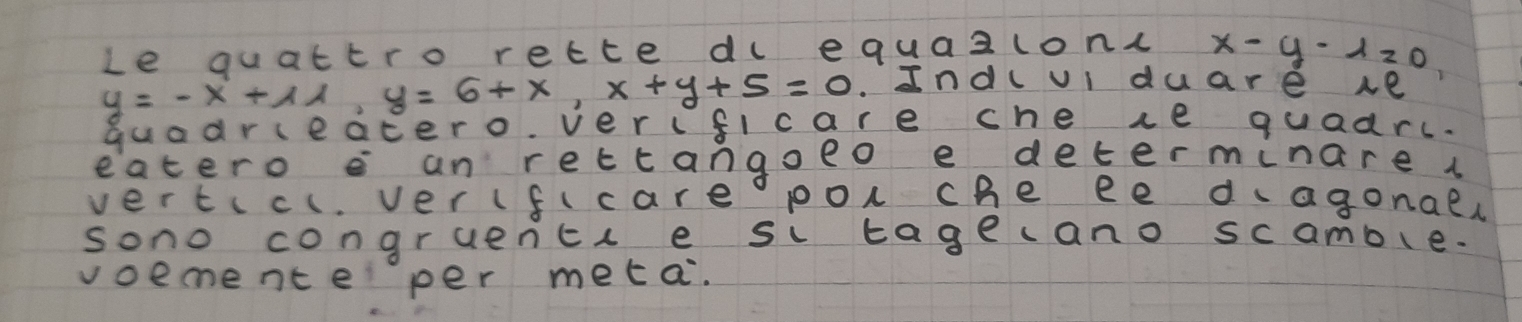 Le quattro rette di equazioni x-y-1=0,
y=-x+11, y=6+x, x+y+5=0. Individuare il
quadrilatero. Verificare che il quadri-
latero è un rettangolo e determinare i
vertici. Verificare poi che le diagonali
sono congruenti e si tagliano scambie-
volmente per metà.